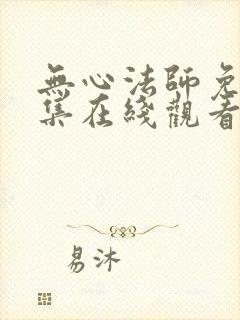 無心法師免
集在綫觀看
易沐